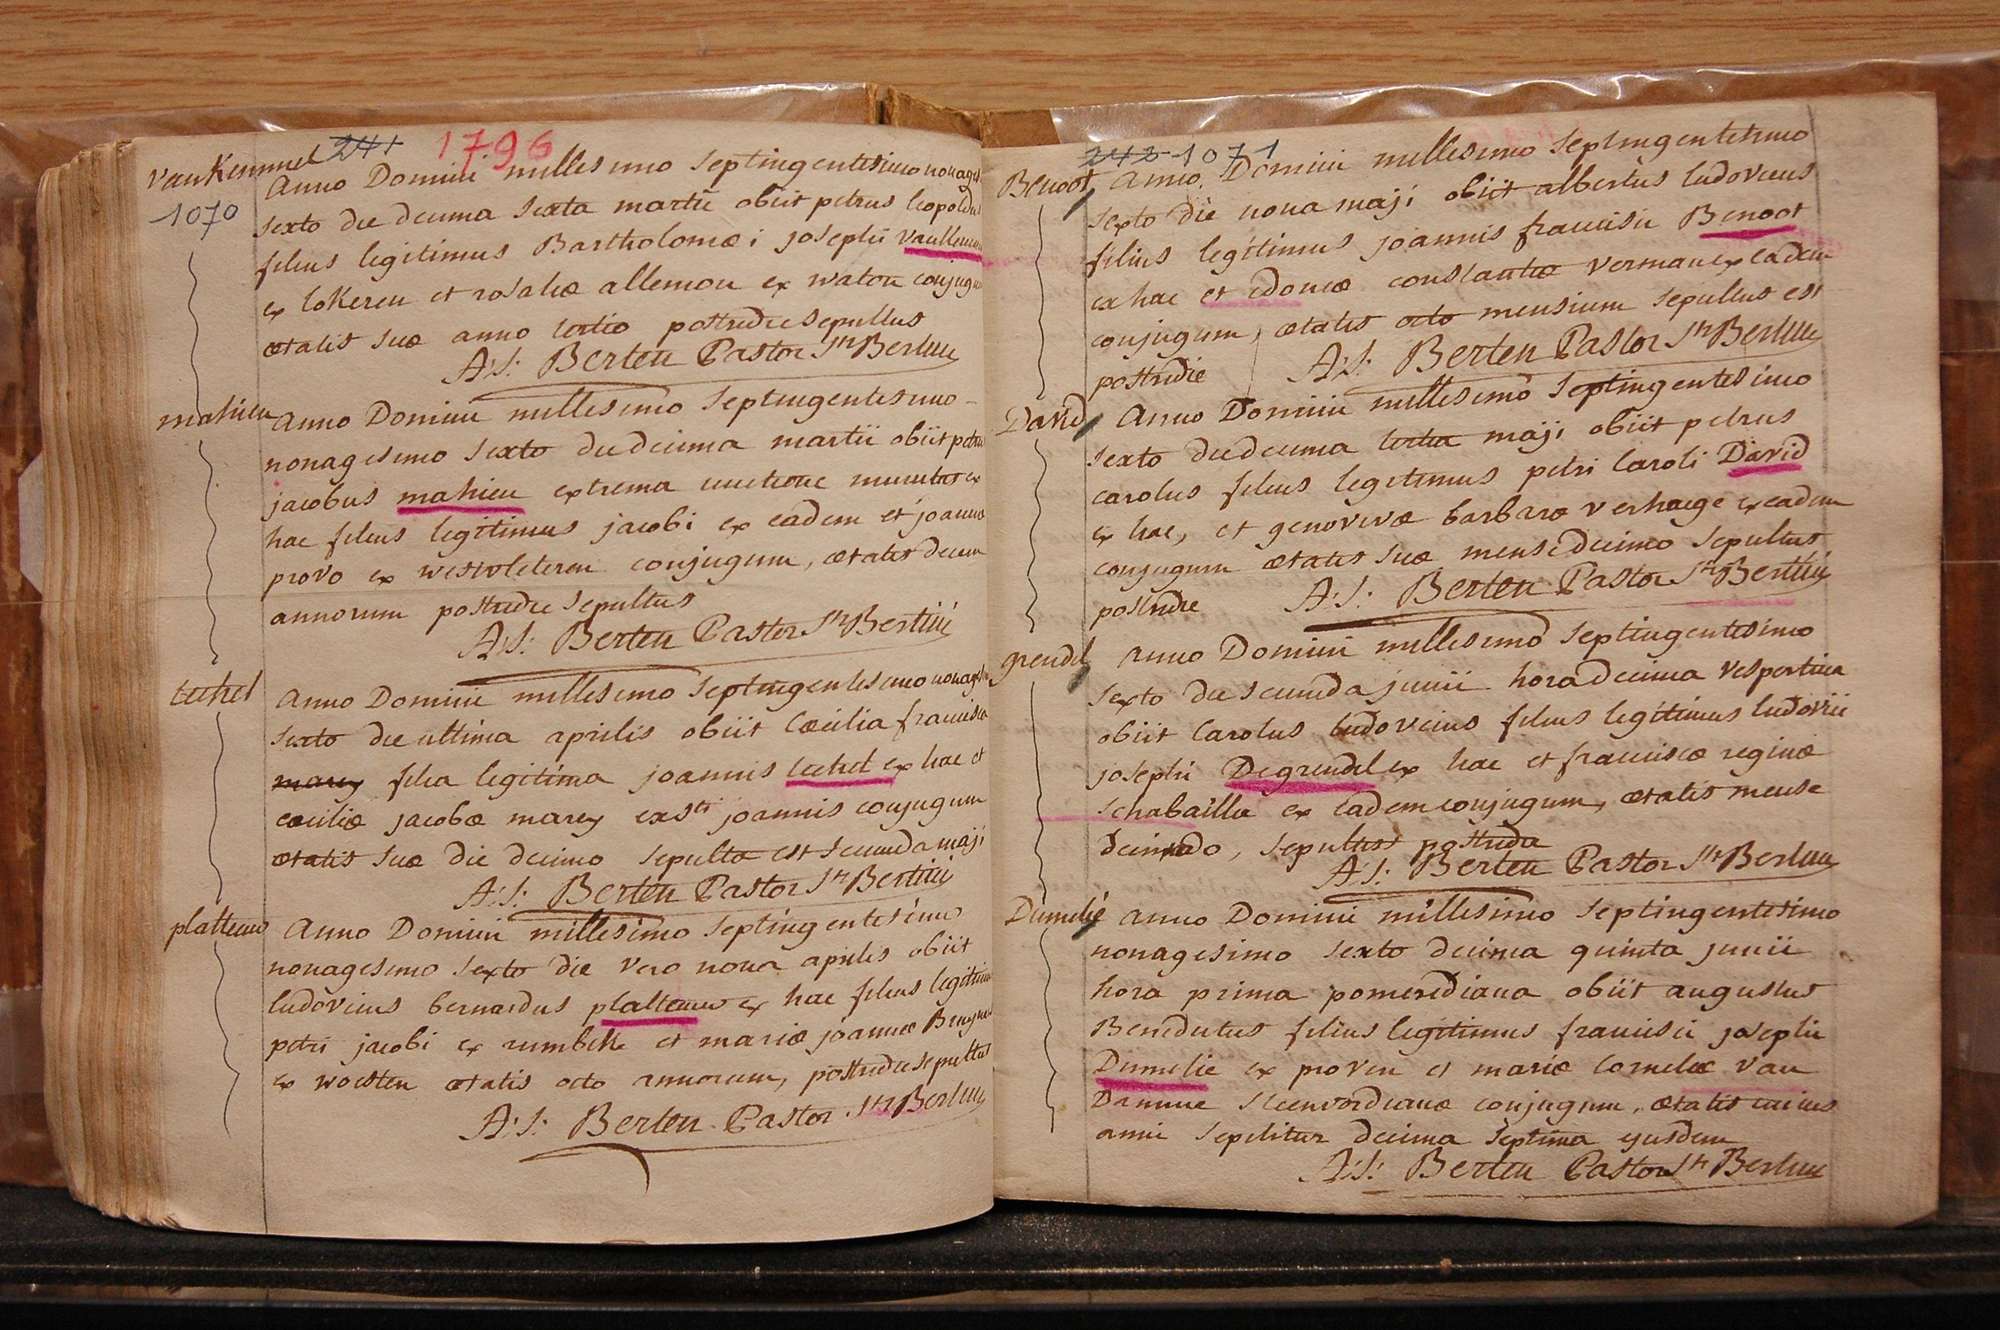 vankemmel 241 1796
1070
Anno Domini millesimo septingentesimo nonages
sexto die decima sexta martii obiit petrus leopoldus
filius legitimus Bartholomæi josephi
ex lokeren et rosaliæ allemon ex watou conjugum
ætatis suæ anno tertio postridie sepultus
A:S: Berten Pastor Sti Bertini
mahieu
Anno Domini millesimo septingentesimo
nonagesimo sexto die decima martii obiit petrus
jacobus mahieu extrema unctione munitus ex
hac filius legitimus jacobi ex eadem et joannæ
provo ex westvleteren conjugum, ætatis decem
annorum postridie sepultus
A:S: Berten Pastor Sti Bertini
techel
Anno Domini millesimo septingentesimo nonages
sexto die ultima aprilis obiit Cæcilia francisca
marey filia legitima joannis techel ex hac et
cæciliæ jacobæ marey ex sti joannis conjugum
ætatis suæ die decimo sepulta est secunda maji
A:S: Berten Pastor Sti Bertini
platteeuw
Anno Domini millesimo septingentesimo
nonagesimo sexto die vero nona aprilis obiit
ludovicus bernardus platteeuw ex hac filius legitimus
petri jacobi ex rumbeke et mariæ joannæ
ex woesten ætatis octo annorum, postridie sepultus
A:S: Berten Pastor Sti Bertini
242 1071
Benoot
Anno Domini millesimo septingentesimo
sexto die nona maji obiit albertus ludovicus
filius legitimus joannis francisci Benoot
ex hac et idoneæ constantiæ verman ex eadem
conjugum, ætatis octo mensium sepultus est
postridie A:S: Berten Pastor Sti Bertini
David
Anno Domini millesimo septingentesimo
sexto die decima tertia maji obiit petrus
carolus filius legitimus petri caroli David
ex hac, et genovevæ barbaræ verhaege ex eadem
conjugum ætatis suæ mense decimo sepultus
postridie A:S: Berten Pastor Sti Bertini
grendel
Anno Domini millesimo septingentesimo
sexto die secunda junii hora decima vespertina
obiit Carolus ludovicus filius legitimus ludovici
josephi Degrendel ex hac et franciscæ reginæ
schabaillie ex eadem conjugum, ætatis mense
, sepultus postridie
A:S: Berten Pastor Sti Bertini
Dumelié
Anno Domini millesimo septingentesimo
nonagesimo sexto decima quinta junii
hora prima pomeridiana obiit augustus
Benedictus filius legitimus francisci josephi
Dumelie ex proven et mariæ Corneliæ van
Damme steenvordianæ conjugum, ætatis unius
anni sepelitur decima septima ejusdem
A:S: Berten Pastor Sti Bertini